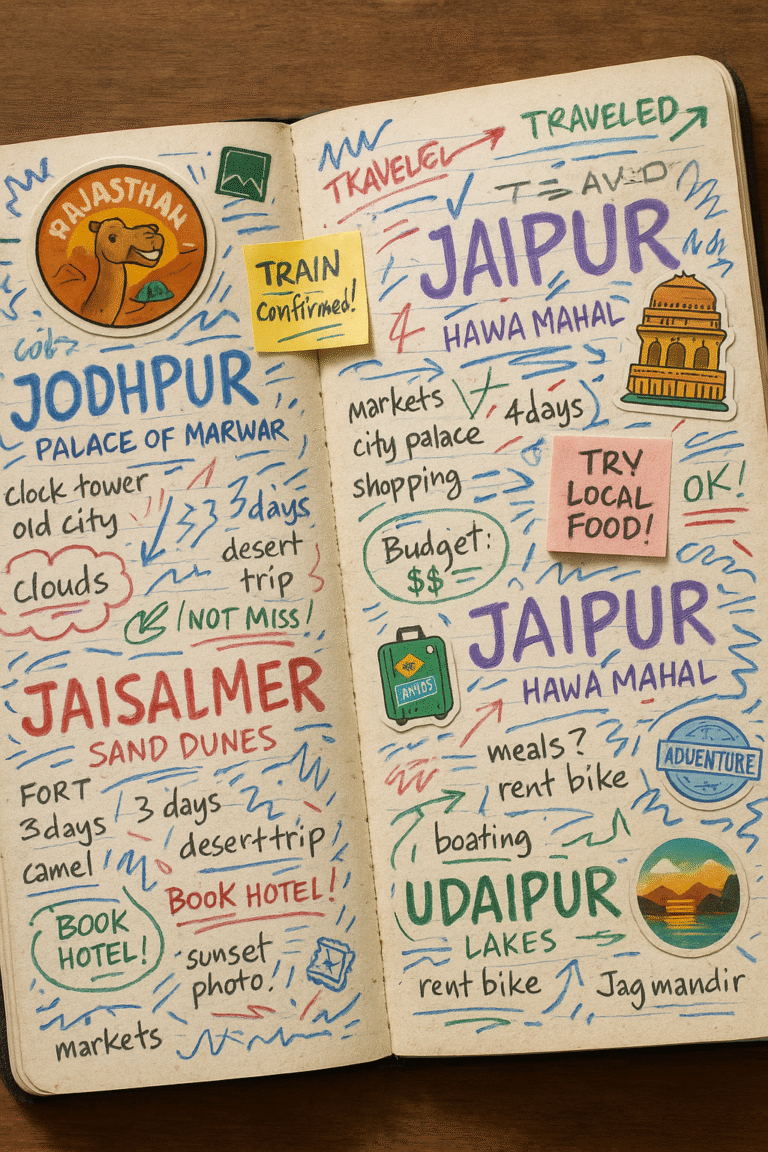 RAJASTHAN
TRAIN
Confirmed!
JODHPUR
PALACE OF MARWAR
clock tower
old city
3 days
desert
trip
clouds
NOT MISS
JAISALMER
SAND DUNES
FORT
3 days
3 days
camel
desert trip
BOOK HOTEL!
BOOK
HOTEL!
sunset
photo!
markets
TRAVELED
JAIPUR
4
HAWA MAHAL
markets
4 days
city palace
shopping
TRY
LOCAL
FOOD!
OK!
Budget:
$$
JAIPUR
HAWA MAHAL
meals?
rent bike
ADVENTURE
boating
UDAIPUR
LAKES
rent bike
Jag mandir